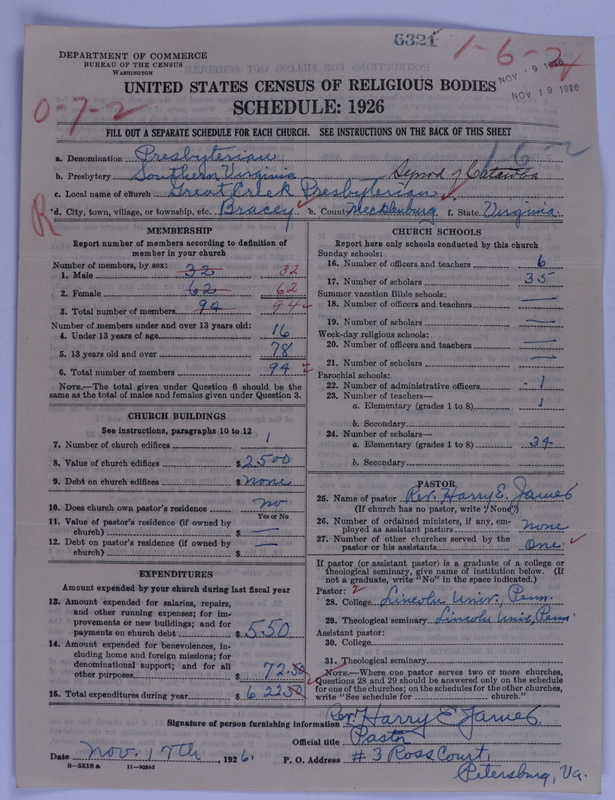 6321
1-6-2
DEPARTMENT OF COMMERCE
BUREAU OF THE CENSUS
WASHINGTON
NOV 9 1926
NOV 19 1926
UNITED STATES CENSUS OF RELIGIOUS BODIES
SCHEDULE: 1926
0-7-2
FILL OUT A SEPARATE SCHEDULE FOR EACH CHURCH. SEE INSTRUCTIONS ON THE BACK OF THIS SHEET
16-2
a. Denomination Presbyterian
b. Presbytery Southern Virginia Synod of Catawba
c. Local name of church Great Creek Presbyterian
R
*d. City, town, village, or township, etc. Bracey *e. County Mecklenburg f. State Virginia
MEMBERSHIP
Report number of members according to definition of
member in your church
Number of members, by sex:
1. Male 32 32
2. Female 62 62
3. Total number of members 94 94
Number of members under and over 13 years old:
4. Under 13 years of age 16
5. 13 years old and over 78
6. Total number of members 94
NOTE.—The total given under Question 6 should be the
same as the total of males and females given under Question 3.
CHURCH BUILDINGS
See instructions, paragraphs 10 to 12
7. Number of church edifices 1
8. Value of church edifices $2500
9. Debt on church edifices $none
10. Does church own pastor's residence? no
Yes or No
11. Value of pastor's residence (if owned by
church) $ —
12. Debt on pastor's residence (if owned by
church) $ —
EXPENDITURES
Amount expended by your church during last fiscal year
13. Amount expended for salaries, repairs,
and other running expenses; for im-
provements or new buildings; and for
payments on church debt $550
14. Amount expended for benevolences, in-
cluding home and foreign missions; for
denominational support; and for all
other purposes 72.50
15. Total expenditures during year $622.50
CHURCH SCHOOLS
Report here only schools conducted by this church
Sunday schools:
16. Number of officers and teachers 6
17. Number of scholars 35
Summer vacation Bible schools:
18. Number of officers and teachers —
19. Number of scholars —
Week-day religious schools:
20. Number of officers and teachers —
21. Number of scholars —
Parochial schools:
22. Number of administrative officers 1
23. Number of teachers—
a. Elementary (grades 1 to 8) 1
b. Secondary
24. Number of scholars—
a. Elementary (grades 1 to 8) 34
b. Secondary
PASTOR
25. Name of pastor Rev. Harry E. James
(If church has no pastor, write "None")
26. Number of ordained ministers, if any, em-
ployed as assistant pastors none
27. Number of other churches served by the
pastor or his assistants One
If pastor (or assistant pastor) is a graduate of a college or
theological seminary, give name of institution below. (If
not a graduate, write "No" in the space indicated.)
Pastor: 2
28. College Lincoln Univ., Penn.
29. Theological seminary Lincoln Univ., Penn.
Assistant pastor:
30. College
31. Theological seminary
NOTE.—Where one pastor serves two or more churches,
Questions 28 and 29 should be answered only on the schedule
for one of the churches; on the schedules for the other churches,
write "See schedule for church."
Signature of person furnishing information Rev. Harry E. James
Official title Pastor
Date Nov. 17th, 1926. P. O. Address #3 Ross Court,
8—5518a 11—9084d
Petersburg, Va.